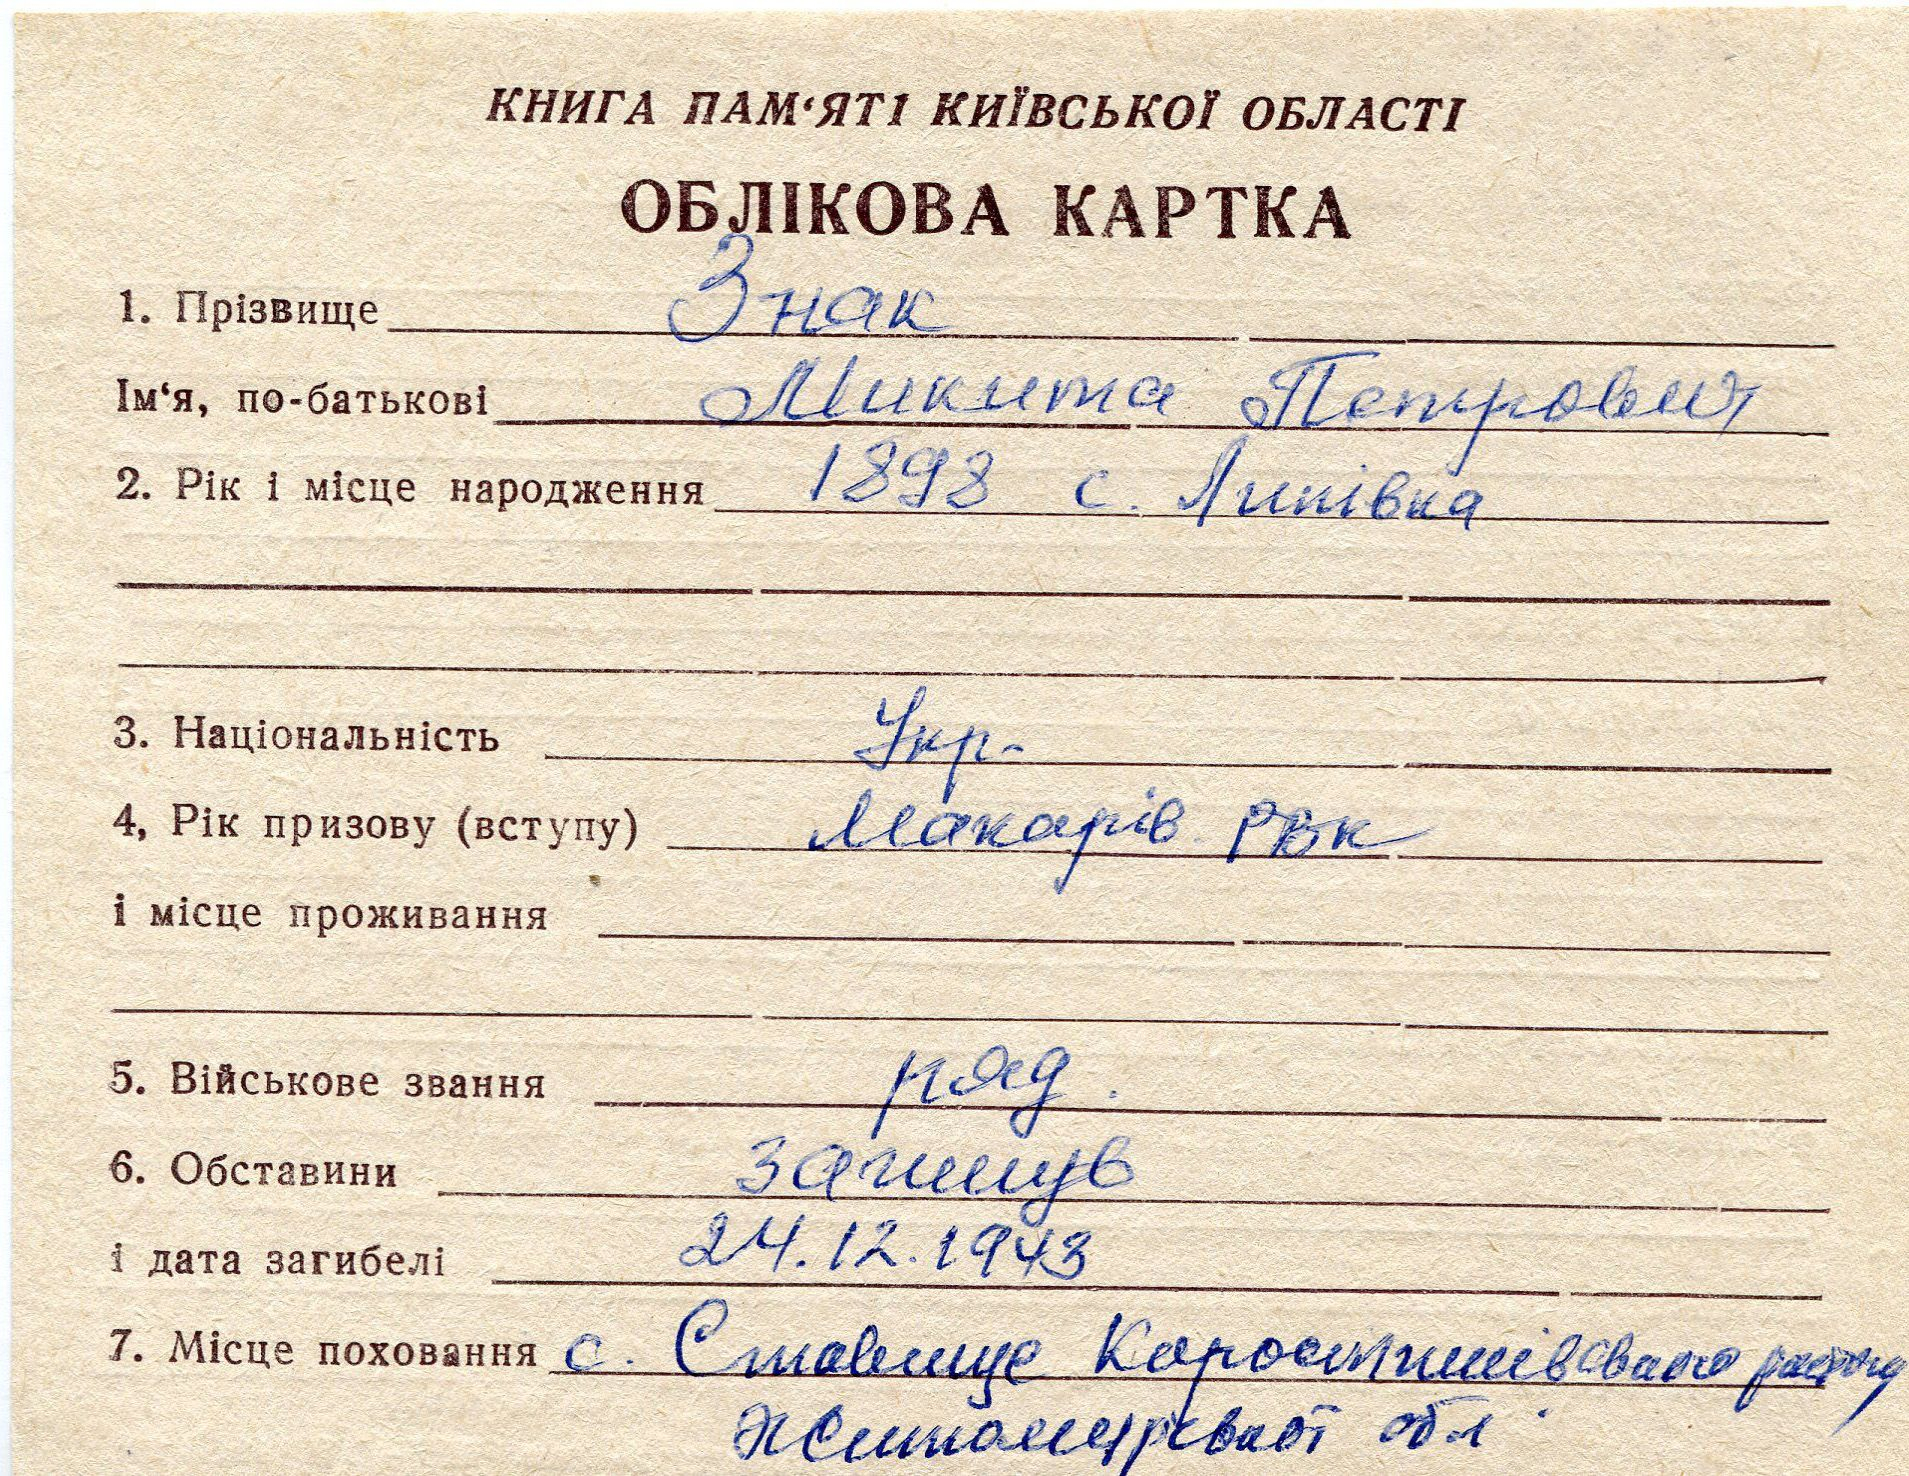 КНИГА ПАМ‘ЯТІ КИЇВСЬКОЇ ОБЛАСТІ
ОБЛІКОВА КАРТКА
1. Прізвище Знак
Ім‘я, по-батькові Микита Петрович
2. Рік і місце народження 1898 с. Липівка
3. Національність Укр-
4, Рік призову (вступу) Макарів. РВК
і місце проживання
5. Військове звання ряд.
6. Обставини загинув
і дата загибелі 24.12.1943
7. Місце поховання с. Ставище Коростишівського району
Житомирської обл.